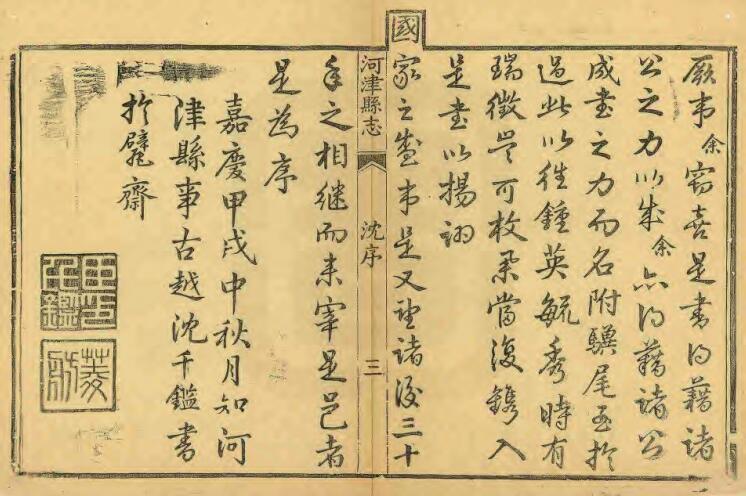 厥事余窃喜是書得藉諸
公之力以成余亦得藉諸公
成書之力而名附驥尾至於
過此以往鍾英毓秀時有
瑞徵豈可枚舉當復鐫入
是書以揚詡
國家之盛事是又望諸後三十
河津縣志
沈序
三
年之相繼而來宰是邑者
是為序
嘉慶甲戌中秋月知河
津縣事古越沈千鑑書
於甓齋